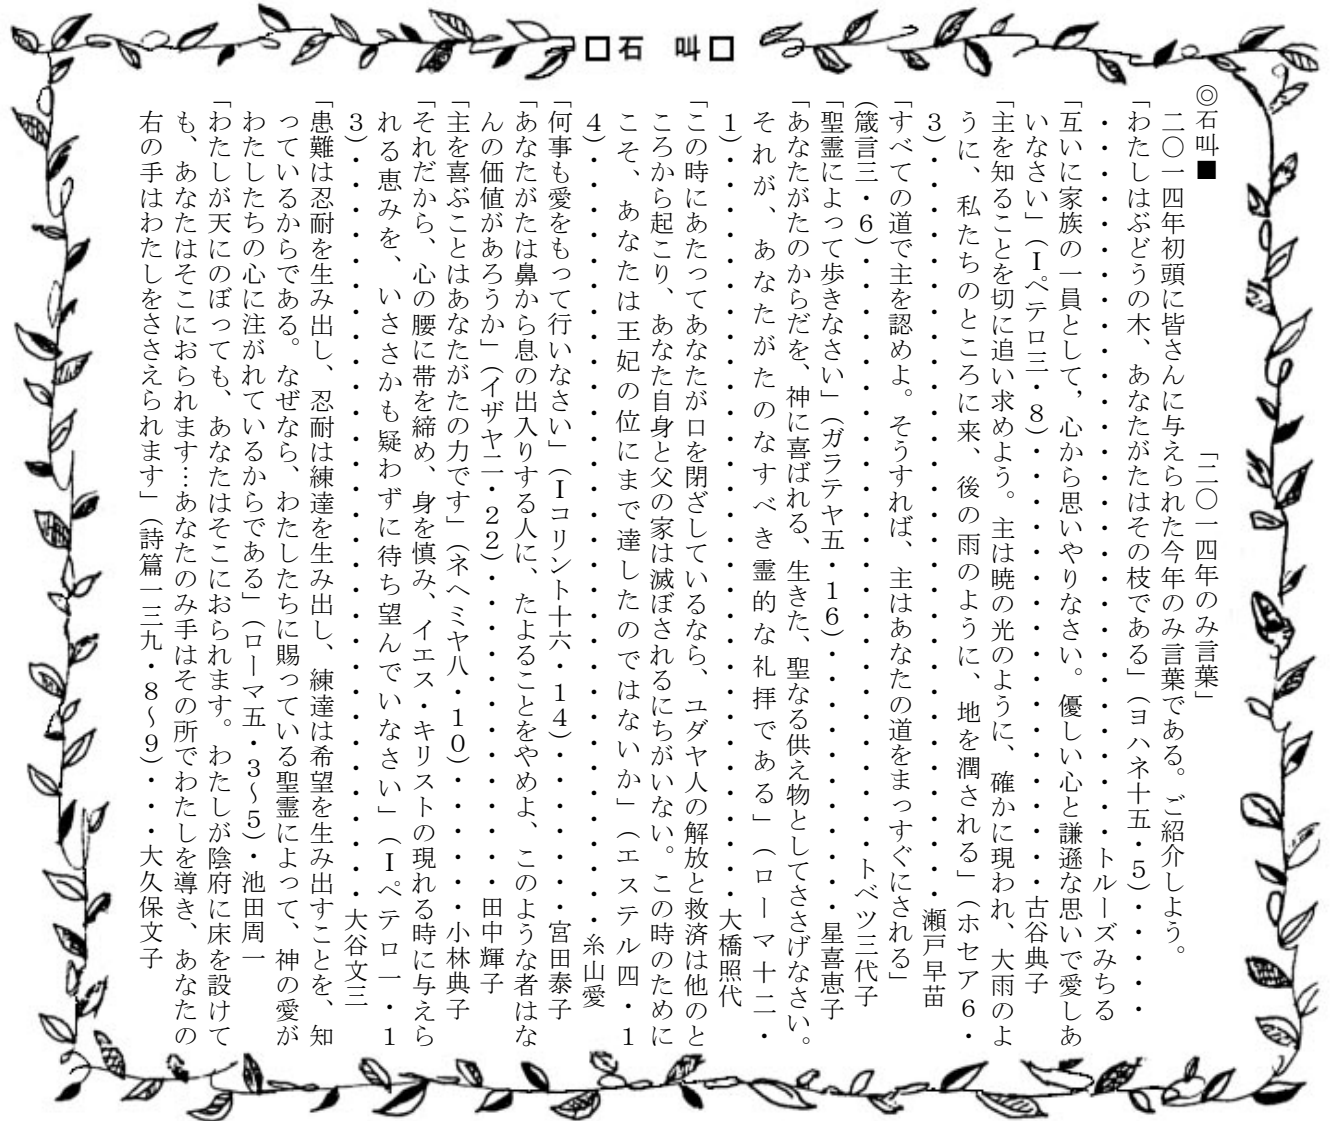 □石　叫□
◎石叫■　　　　　　　　　　　「二〇一四年のみ言葉」
二〇一四年初頭に皆さんに与えられた今年のみ言葉である。ご紹介しよう。
「わたしはぶどうの木、あなたがたはその枝である」（ヨハネ十五・5）・・・・
・・・・・・・・・・・・・・・・・・・・・・・・・・・・・トルーズみちる
「互いに家族の一員として，心から思いやりなさい。優しい心と謙遜な思いで愛しあ
いなさい」（Ⅰペテロ三・8）・・・・・・・・・・・・・・・・・・・古谷典子
「主を知ることを切に追い求めよう。主は暁の光のように、確かに現われ、大雨のよ
うに、私たちのところに来、後の雨のように、地を潤される」（ホセア6・
3）・・・・・・・・・・・・・・・・・・・・・・・・・・・・・・・瀬戸早苗
「すべての道で主を認めよ。そうすれば、主はあなたの道をまっすぐにされる」
（箴言三・6）・・・・・・・・・・・・・・・・・・・・・・・・トベツ三代子
「聖霊によって歩きなさい」（ガラテヤ五・16）・・・・・・・・・・・星喜恵子
「あなたがたのからだを、神に喜ばれる、生きた、聖なる供え物としてささげなさい。
それが、あなたがたのなすべき霊的な礼拝である」（ローマ十二・
1）・・・・・・・・・・・・・・・・・・・・・・・・・・・・・・・大橋照代
「この時にあたってあなたが口を閉ざしているなら、ユダヤ人の解放と救済は他のと
ころから起こり、あなた自身と父の家は滅ぼされるにちがいない。この時のために
こそ、あなたは王妃の位にまで達したのではないか」（エステル四・1
4）・・・・・・・・・・・・・・・・・・・・・・・・・・・・・・・・糸山愛
「何事も愛をもって行いなさい」（Ⅰコリント十六・14）・・・・・・・宮田泰子
「あなたがたは鼻から息の出入りする人に、たよることをやめよ、このような者はな
んの価値があろうか」（イザヤ二・22）・・・・・・・・・・・・・・・田中輝子
「主を喜ぶことはあなたがたの力です」（ネヘミヤ八・10）・・・・・・小林典子
「それだから、心の腰に帯を締め、身を慎み、イエス・キリストの現れる時に与えら
れる恵みを、いささかも疑わずに待ち望んでいなさい」（Ⅰペテロ一・1
3）・・・・・・・・・・・・・・・・・・・・・・・・・・・・・・・大谷文三
「患難は忍耐を生み出し、忍耐は練達を生み出し、練達は希望を生み出すことを、知
っているからである。なぜなら、わたしたちに賜っている聖霊によって、神の愛が
わたしたちの心に注がれているからである」（ローマ五・3～5）・池田周一
「わたしが天にのぼっても、あなたはそこにおられます。わたしが陰府に床を設けて
も、あなたはそこにおられます…あなたのみ手はその所でわたしを導き、あなたの
右の手はわたしをささえられます」（詩篇一三九・8～9）・・・大久保文子